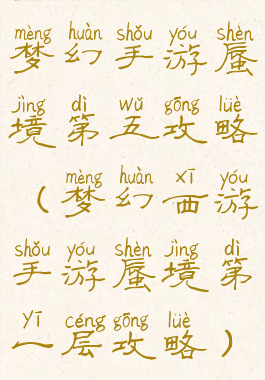 mèng huàn shǒu yóu shèn
梦幻手游蜃
jìng dì wǔ gōng lüè
境第五攻略
mèng huàn xī yóu
（梦幻西游
shǒu yóu shèn jìng dì
手游蜃境第
yī céng gōng lüè
一层攻略）